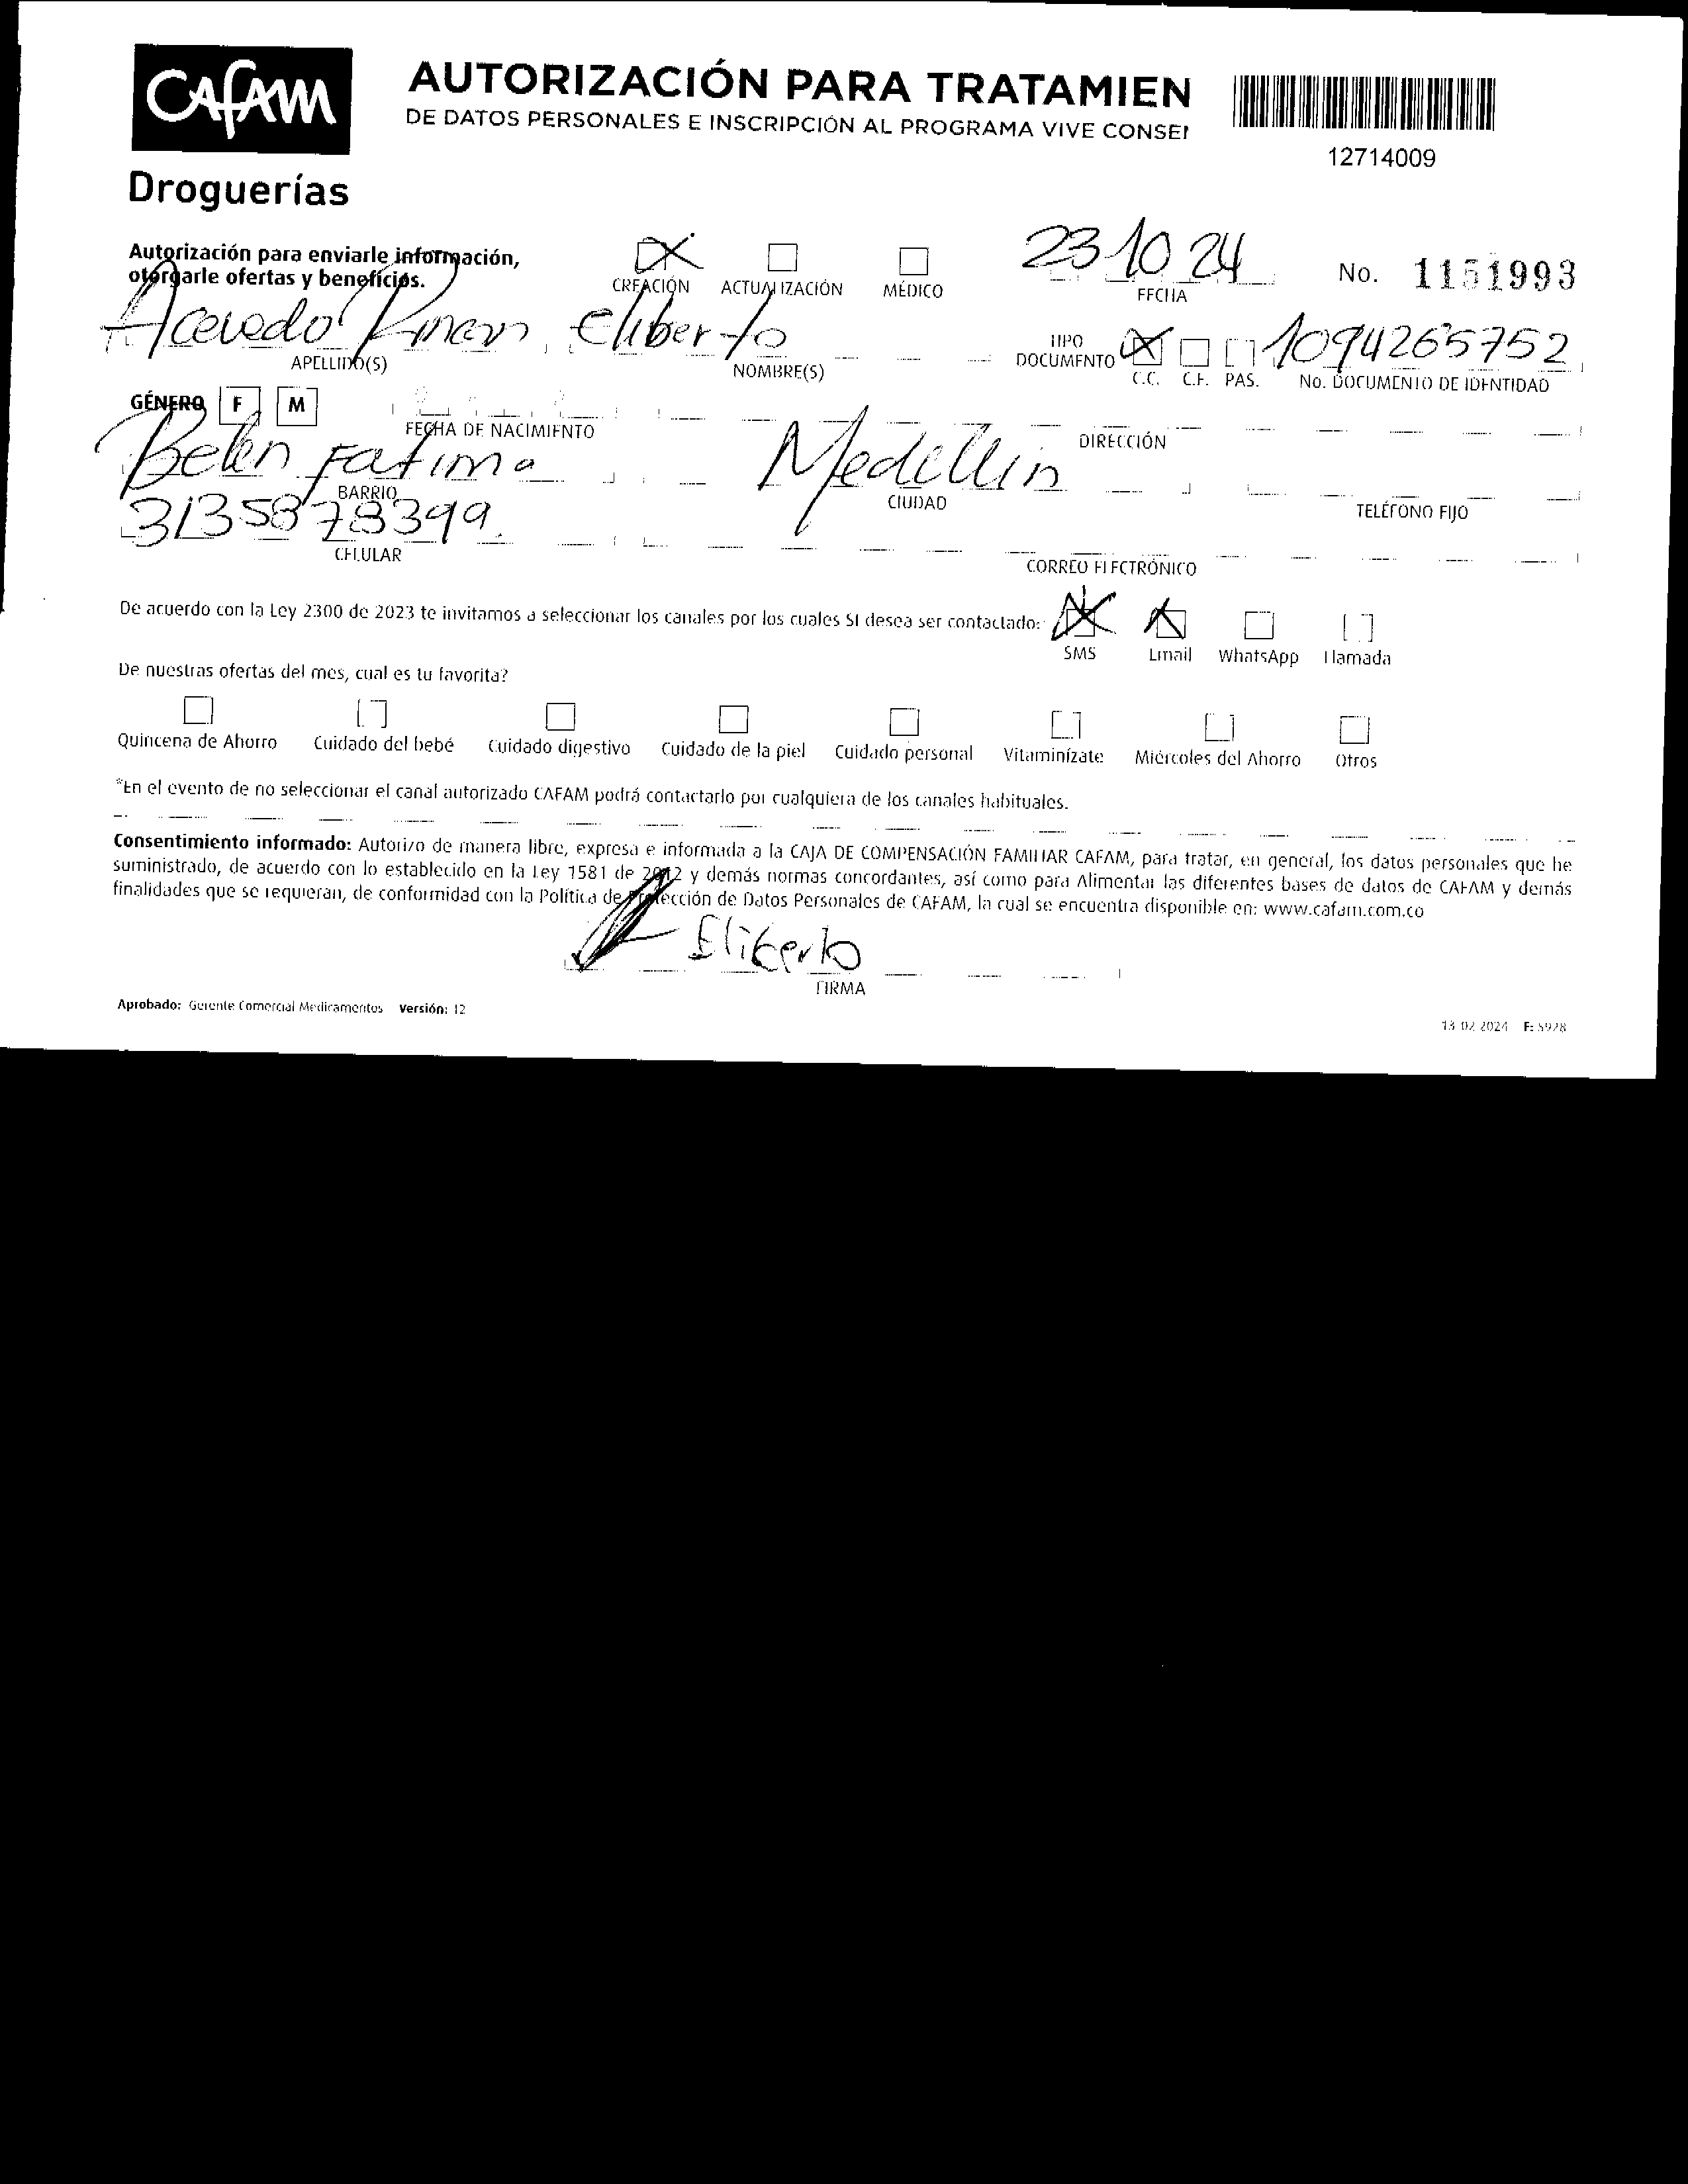 CAFAM
Droguerías
AUTORIZACIÓN PARA TRATAMIEN
DE DATOS PERSONALES E INSCRIPCIÓN AL PROGRAMA VIVE CONSEI
12714009
Autorización para enviarle información,
otorgarle ofertas y beneficios.
CREACIÓN ACTUALIZACIÓN MÉDICO
23 10 24
FECHA
No. 1151993
Acevedo Eliberto
APELLIDO(S) NOMBRE(S)
TIPO
DOCUMENTO
C.C. C.E. PAS.
1094265752
No. DOCUMENTO DE IDENTIDAD
GÉNERO F M
FECHA DE NACIMIENTO
DIRECCIÓN
Belen Fatima Medellin
BARRIO CIUDAD TELÉFONO FIJO
3135878399
CELULAR CORREO ELECTRÓNICO
De acuerdo con la Ley 2300 de 2023 te invitamos a seleccionar los canales por los cuales SI desea ser contactado:
SMS Email WhatsApp Llamada
De nuestras ofertas del mes, cual es tu favorita?
Quincena de Ahorro Cuidado del bebé Cuidado digestivo Cuidado de la piel Cuidado personal Vitaminízate Miércoles del Ahorro Otros
*En el evento de no seleccionar el canal autorizado CAFAM podrá contactarlo por cualquiera de los canales habituales.
Consentimiento informado: Autorizo de manera libre, expresa e informada a la CAJA DE COMPENSACIÓN FAMILIAR CAFAM, para tratar, en general, los datos personales que he
suministrado, de acuerdo con lo establecido en la Ley 1581 de 2012 y demás normas concordantes, así como para Alimentar las diferentes bases de datos de CAFAM y demás
finalidades que se requieran, de conformidad con la Política de Protección de Datos Personales de CAFAM, la cual se encuentra disponible en: www.cafam.com.co
Eliberto
FIRMA
Aprobado: Gerente Comercial Medicamentos Versión: 12
13 02 2024 F: 5928